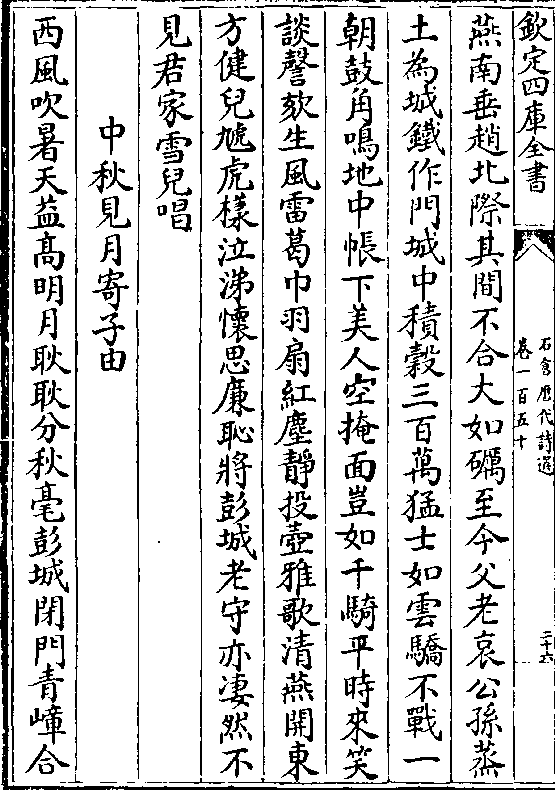 欽定四庫全書
石倉歷代詩選
卷一百五十
二十六
燕南垂趙北際其間不合大如礪至今父老哀公孫蒸
土為城鐵作門城中積穀三百萬猛士如雲驕不戰一
朝鼓角鳴地中帳下美人空掩面豈如千騎平時來笑
談謦欬生風雷葛巾羽扇紅塵靜投壺雅歌清燕開東
方健兒虓虎樣泣涕懷思廉恥將彭城老守亦凄然不
見君家雪兒唱
中秋見月寄子由
西風吹暑天益髙明月耿耿分秋毫彭城閉門青嶂合